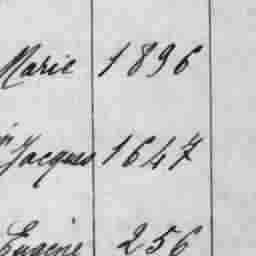 Marie 1896
" Jacques 1647
Eugène 256